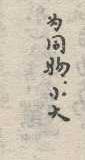 为同物·小大